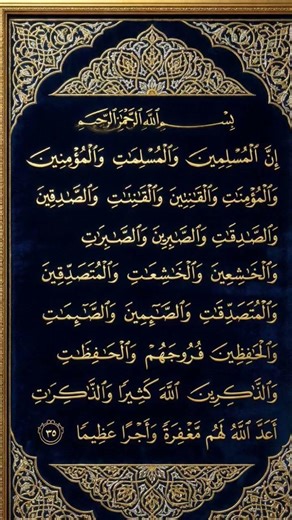 بِسْمِ اللَّهِ الرَّحْمَٰنِ الرَّحِيمِ
إِنَّ الْمُسْلِمِينَ وَالْمُسْلِمَاتِ وَالْمُؤْمِنِينَ
وَالْمُؤْمِنَاتِ وَالْقَانِتِينَ وَالْقَانِتَاتِ وَالصَّادِقِينَ
وَالصَّادِقَاتِ وَالصَّابِرِينَ وَالصَّابِرَاتِ
وَالْخَاشِعِينَ وَالْخَاشِعَاتِ وَالْمُتَصَدِّقِينَ
وَالْمُتَصَدِّقَاتِ وَالصَّائِمِينَ وَالصَّائِمَاتِ
وَالْحَافِظِينَ فُرُوجَهُمْ وَالْحَافِظَاتِ
وَالذَّاكِرِينَ اللَّهَ كَثِيرًا وَالذَّاكِرَاتِ
أَعَدَّ اللَّهُ لَهُم مَّغْفِرَةً وَأَجْرًا عَظِيمًا ٣٥